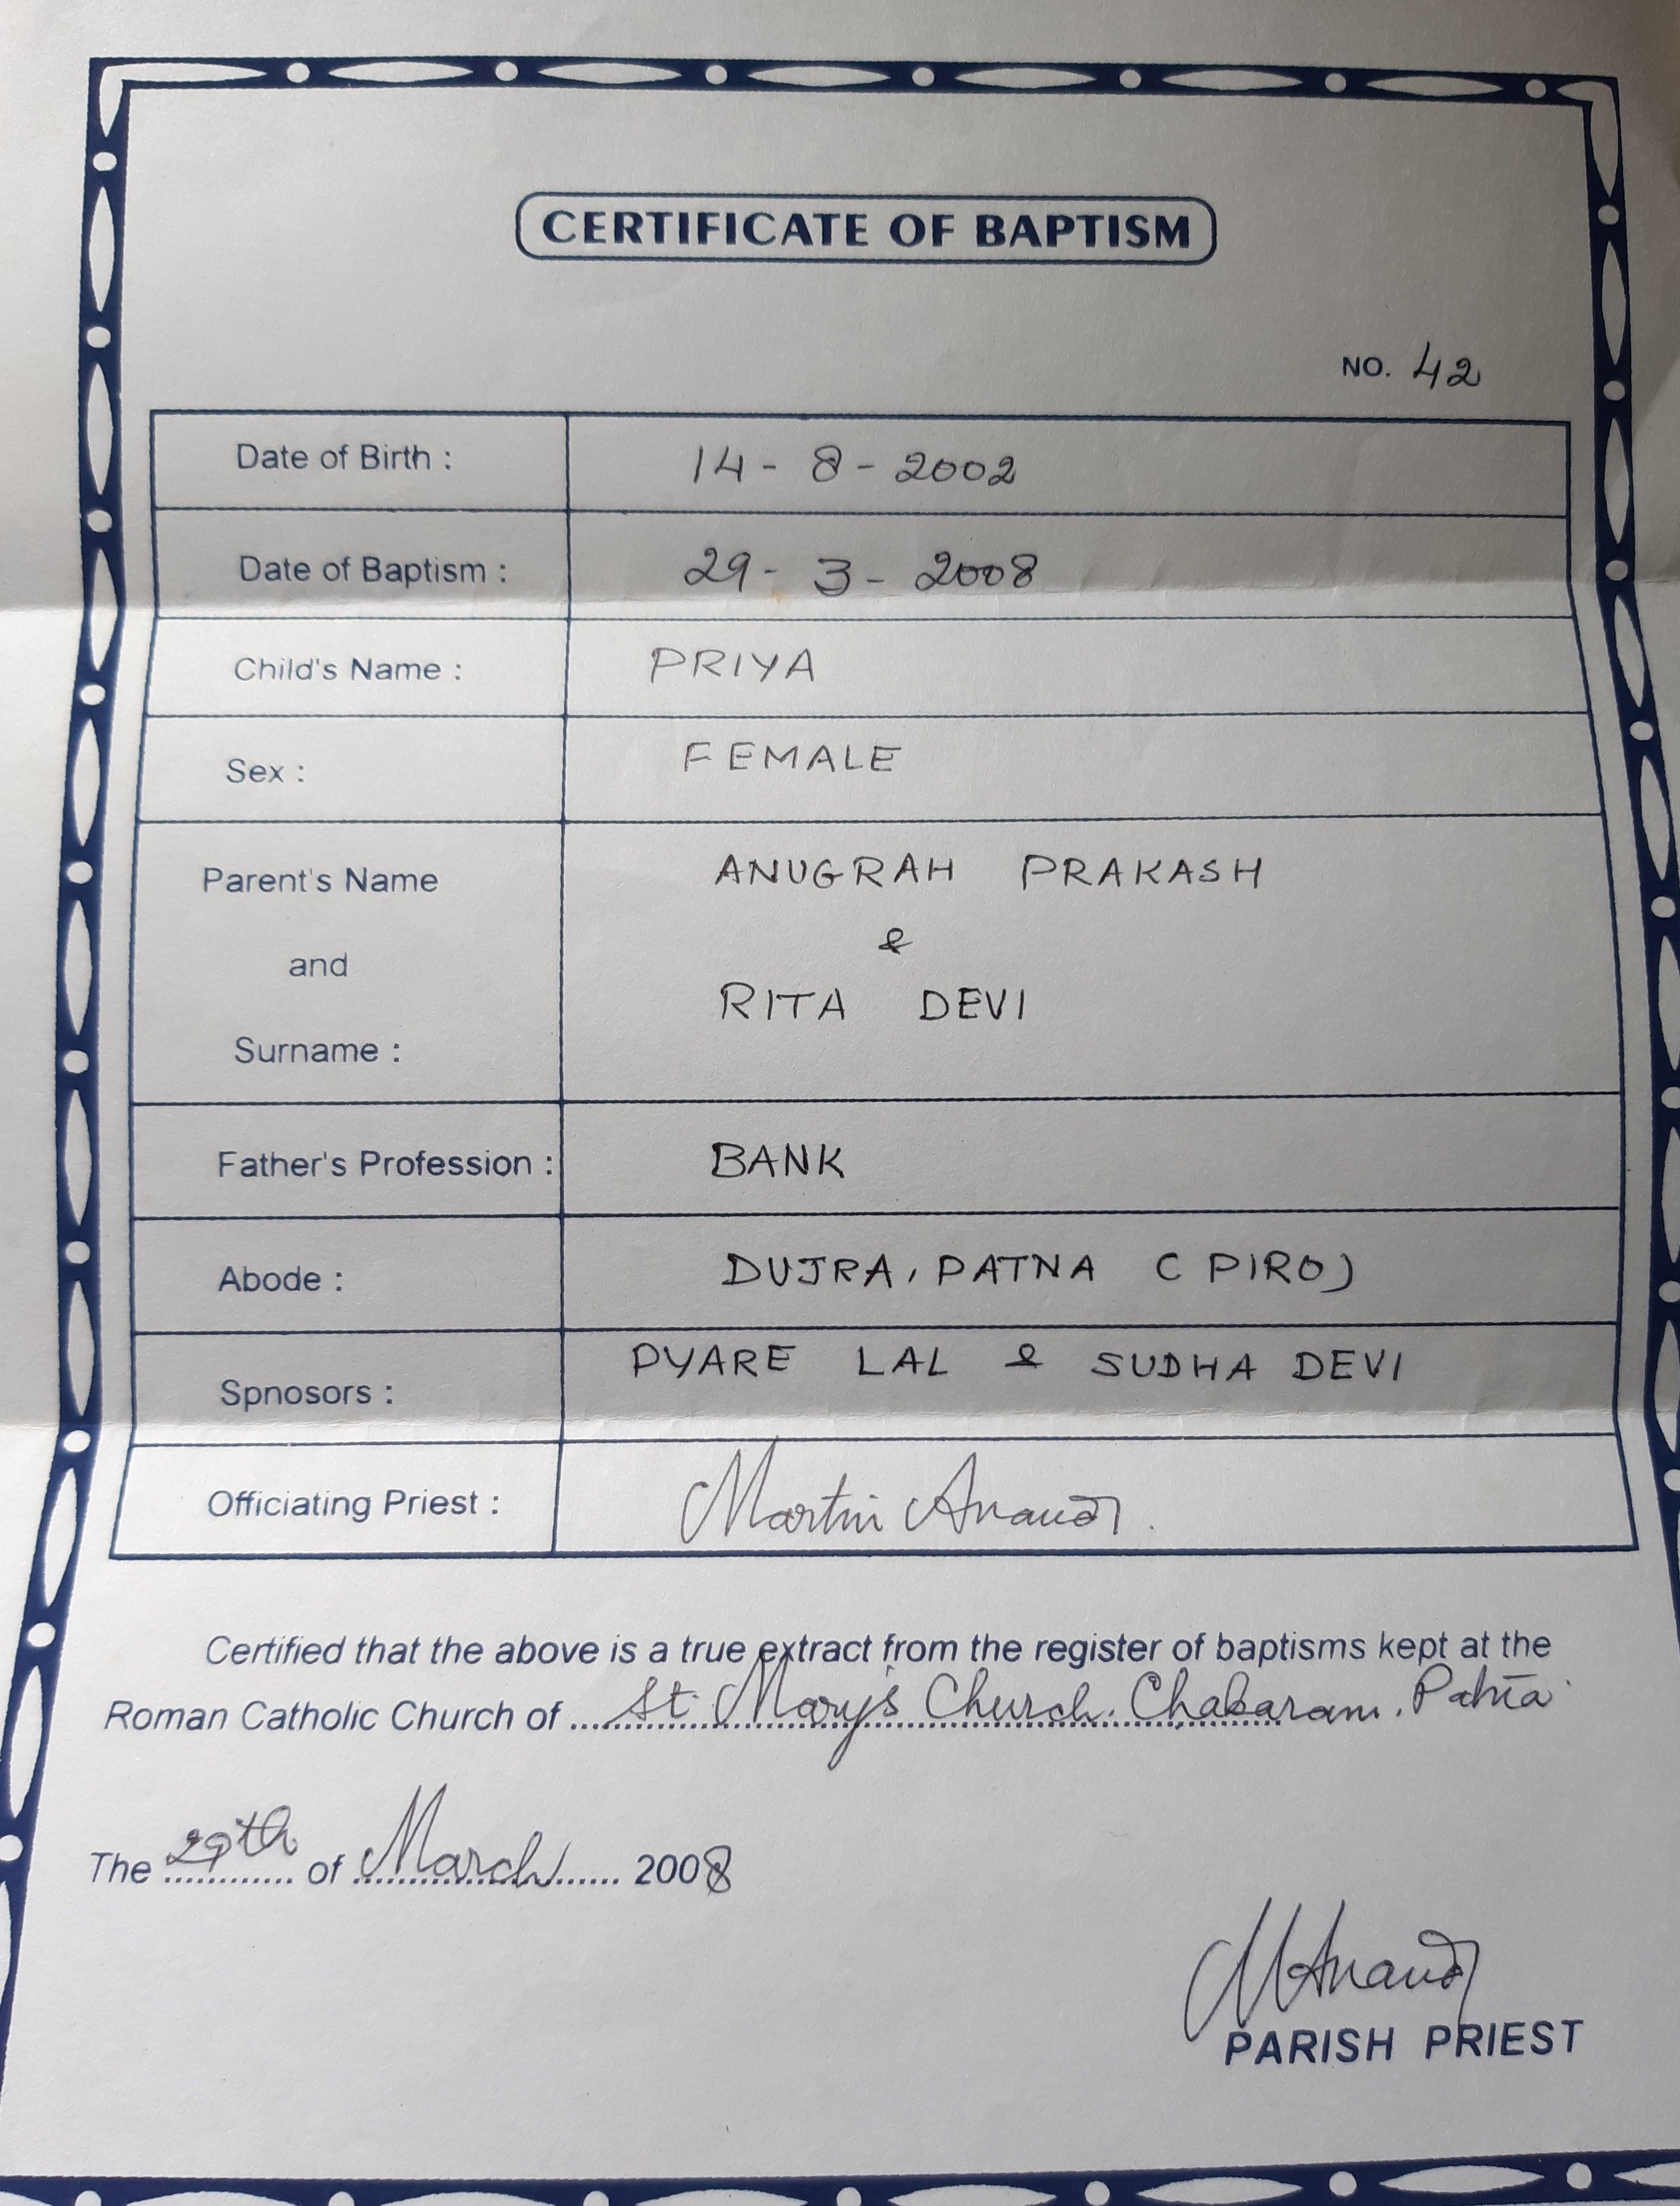 CERTIFICATE OF BAPTISM
NO. 42
Date of Birth : 14 - 8 - 2002
Date of Baptism : 29 - 3 - 2008
Child's Name : PRIYA
Sex : FEMALE
Parent's Name ANUGRAH PRAKASH
and &
Surname : RITA DEVI
Father's Profession : BANK
Abode : DUJRA, PATNA ( PIRO)
Spnosors : PYARE LAL & SUDHA DEVI
Officiating Priest : Martin Anand.
Certified that the above is a true extract from the register of baptisms kept at the
Roman Catholic Church of ...... St. Mary's Church. Chakaram. Patna
The 29th of March 2008
M Anand
PARISH PRIEST